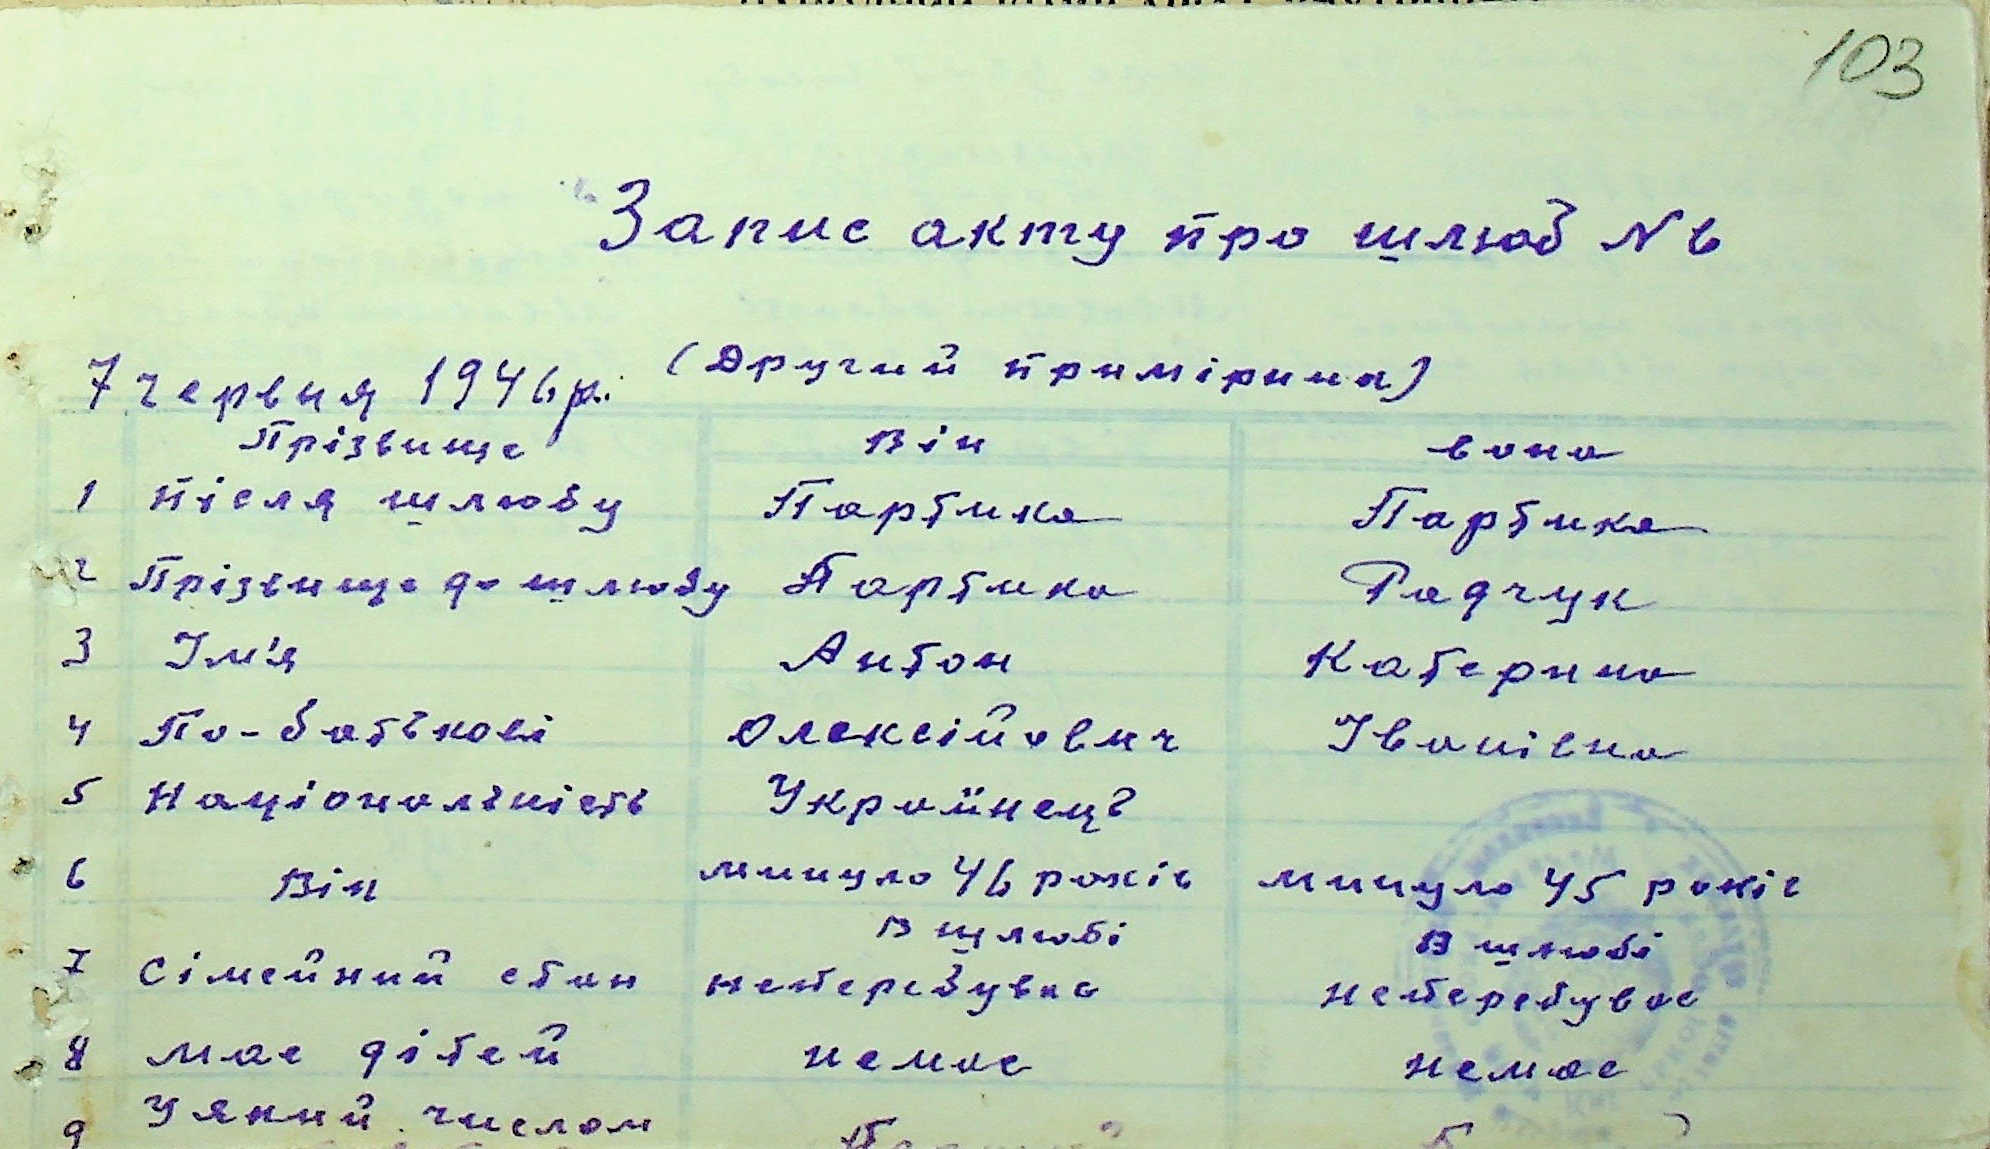 103
Запис акту про шлюб N 6
7 червня 1946 р. (Другий примірник)
Прізвище Він вона
1 після шлюбу Партика Партика
2 Прізвище до шлюбу Партика Радчук
3 Ім'я Антон Катерина
4 По-батькові Олексійович Іванівна
5 Національність Українець
6 Вік минуло 46 років минуло 45 років
В шлюбі В шлюбі
7 Сімейний стан неперебуває неперебуває
8 має дітей немає немає
9 У який числом